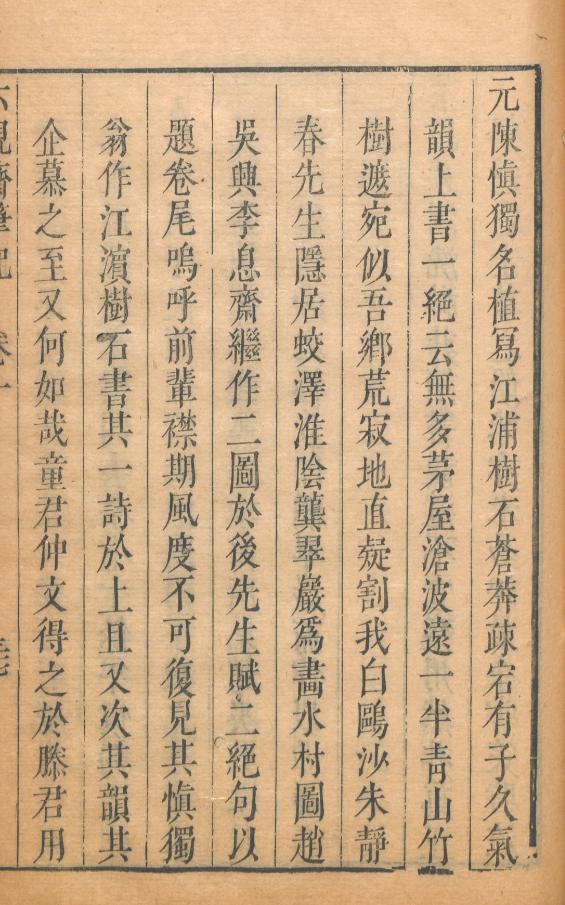 元陳愼獨名植寫江浦樹石蒼莽疎宕有子久氣
韻上書一絕云無多茅屋滄波遠一半靑山竹
樹遮宛似吾鄉荒寂地直疑割我白鷗沙朱靜
春先生隱居蛟澤淮陰龔翠巖爲畫水村圖趙
吳興李息齋繼作二圖於後先生賦二絕句以
題卷尾嗚呼前輩襟期風度不可復見其愼獨
翁作江濵樹石書其一詩於上且又次其韻其
企慕之至又何如哉童君仲文得之於縢君用
六硯齋筆記 卷一